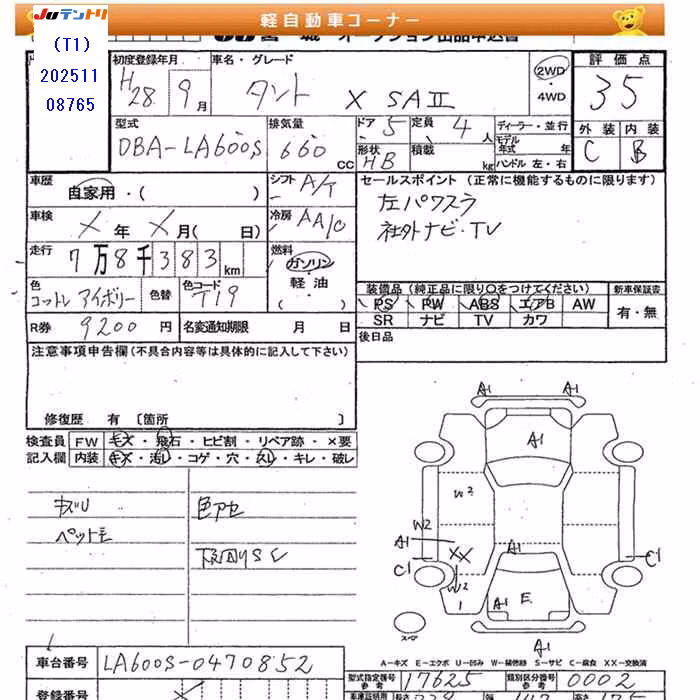 Juテントリ
(T1)
202511
08765
軽自動車コーナー
初度登録年月
H28 9月
車名・グレード
タント X SAⅡ
2WD・4WD
評価点
35
外装 内装
C B
型式
DBA-LA600S
排気量
660 CC
ドア 5
定員 4人
形状 HB
積載 kg
ディーラー・並行
モデル年式 年
ハンドル 左・右
車歴
自家用・( )
シフト A/T
セールスポイント (正常に機能するものに限ります)
左パワスラ
社外ナビ・TV
車検
X年 X月( 日)
冷房 AA/C
走行
7万8千383km
燃料
ガソリン・軽油
( )
色
色替
色コード
T19
装備品 (純正品に限り○をつけてください)
新車保証書
PS PW ABS エアB AW
有・無
SR ナビ TV カワ
R券 9200円
名変通知期限 月 日
後日品
注意事項申告欄(不具合内容等は具体的に記入して下さい)
修復歴 有 〔箇所 〕
検査員 FW キズ・飛石・ヒビ割・リペア跡・×要
記入欄 内装 キズ・汚レ・コゲ・穴・スレ・キレ・破レ
ペット毛
色アセ
下回りSC
A1 A1
A1
W2
W2
A1 A1
XX
C1 C1
W2
A1 E
A1
スペア
A－キズ E－エクボ U－凹み W－補修跡 S－サビ C－腐食 XX－交換済
車台番号 LA600S-0470852
型式指定番号 参考 17625
類別区分番号 参考 0002
登録番号